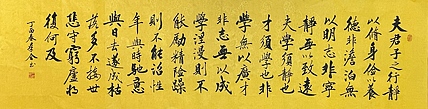 夫君子之行靜
以修身儉以養
德非澹泊無
以明志非寧
靜無以致遠
夫學須靜也
才須學也非
學無以廣才
非志無以成
學淫漫則不
能勵精險躁
則不能冶性
年與時馳意
與日去遂成枯
落多不接世
悲守窮廬將
復何及
丁酉春